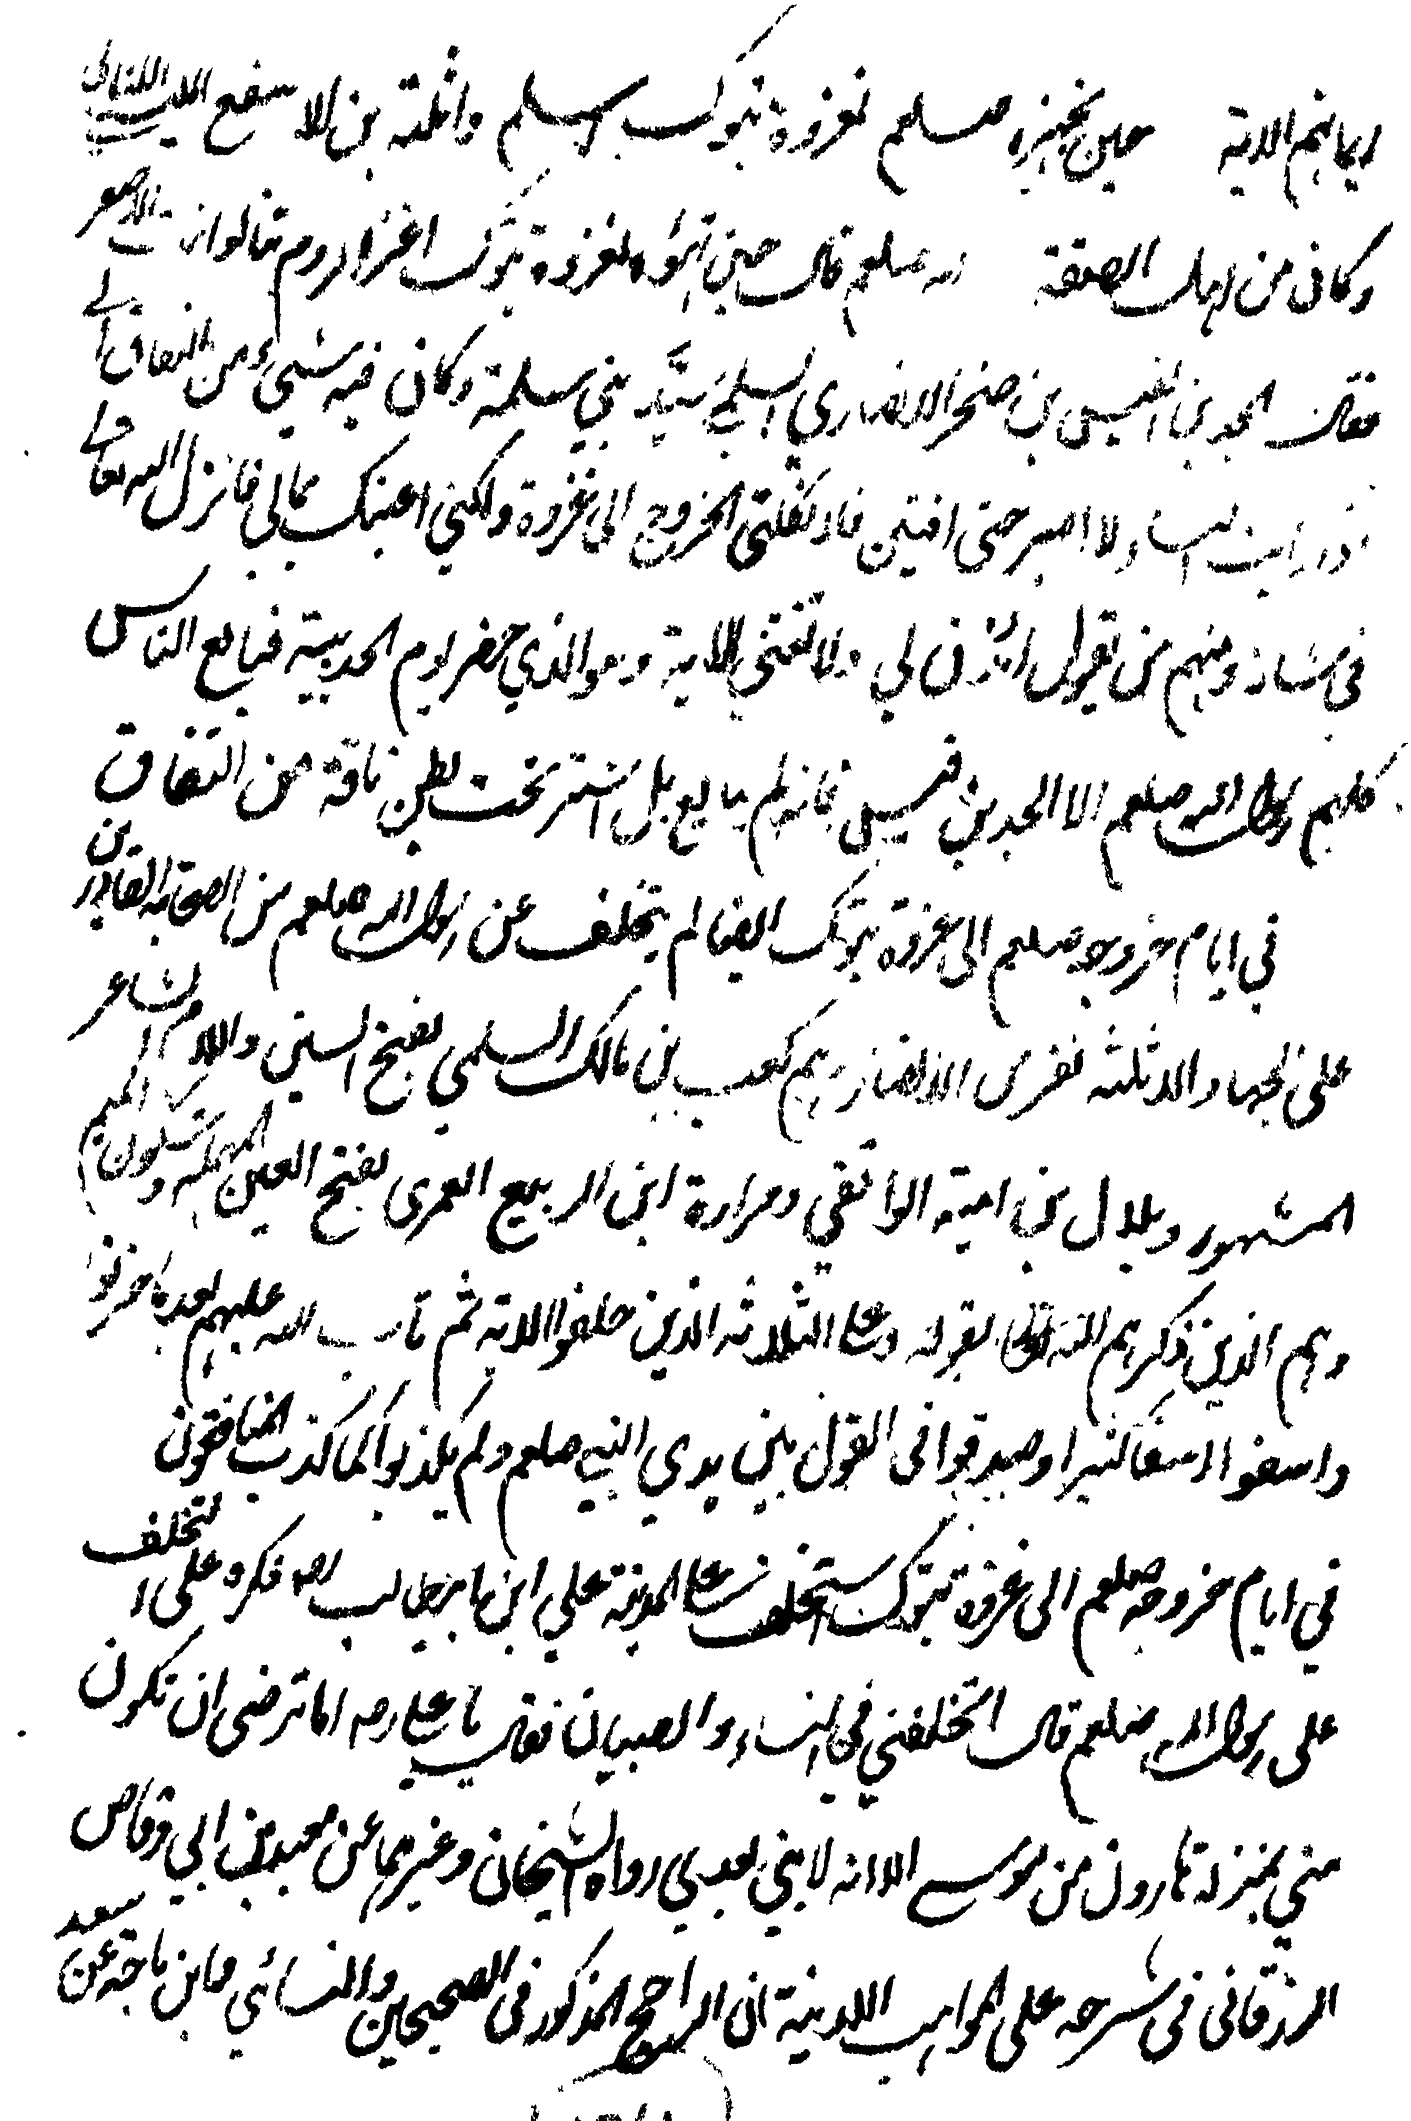 ايمانهم الاية حين تجهيزه صلعم لغزوة تبوك اسلم واثلة بن الاسقع الليثي الكناني
وكان من اهل الصفة صلعم قال حين تهيؤه لغزوة تبوك اغزوا الروم تنالوا بنات الاصفر
فقال الجد بن القيس بن صخر الانصاري السلمي سيد بني سلمة وكان فيه شيء من النفاق
اذا رايت النساء لا اصبر حتى افتتن فلا تكلفني الخروج الى غزوة ولكني اعينك بمالي فانزل الله تعالى
في شانه ومنهم من يقول ائذن لي ولا تفتني الاية وهو الذي حضر يوم الحديبية فبايع الناس
كلهم رسول الله صلعم الا الجد بن قيس فانه لم يبايع بل استتر تحت بطن ناقة من النفاق
في ايام خروجه صلعم الى غزوة تبوك ايضا لم يتخلف عن رسول الله صلعم من الصحابة القادرين
على الجهاد الا ثلثة نفر من الانصار هم كعب بن مالك السلمي بفتح السين واللام الشاعر
المشهور وهلال بن امية الواقفي ومرارة ابن الربيع العمرى بفتح العين المهملة وسكون الميم
وهم الذين ذكرهم الله تعالى بقوله وعلى الثلاثة الذين خلفوا الاية ثم تاب الله عليهم بعد ما حزنوا
واسفوا اسفا كثيرا وصدقوا في القول بين يدي النبي صلعم ولم يكذبوا كما كذب المنافقون
في ايام خروجه صلعم الى غزوة تبوك استخلف على المدينة علي ابن ابي طالب رضه فكره على التخلف
على رسول الله صلعم قال اتخلفني في النساء والصبيان فقال يا علي رضه اما ترضى ان تكون
مني بمنزلة هارون من موسى الا انه لا نبي بعدي رواه الشيخان وغيرهما عن سعد بن ابي وقاص
الزرقاني في شرحه على المواهب اللدنية ان الراجح المذكور في الصحيحين والنسائي وابن ماجة عن سعد